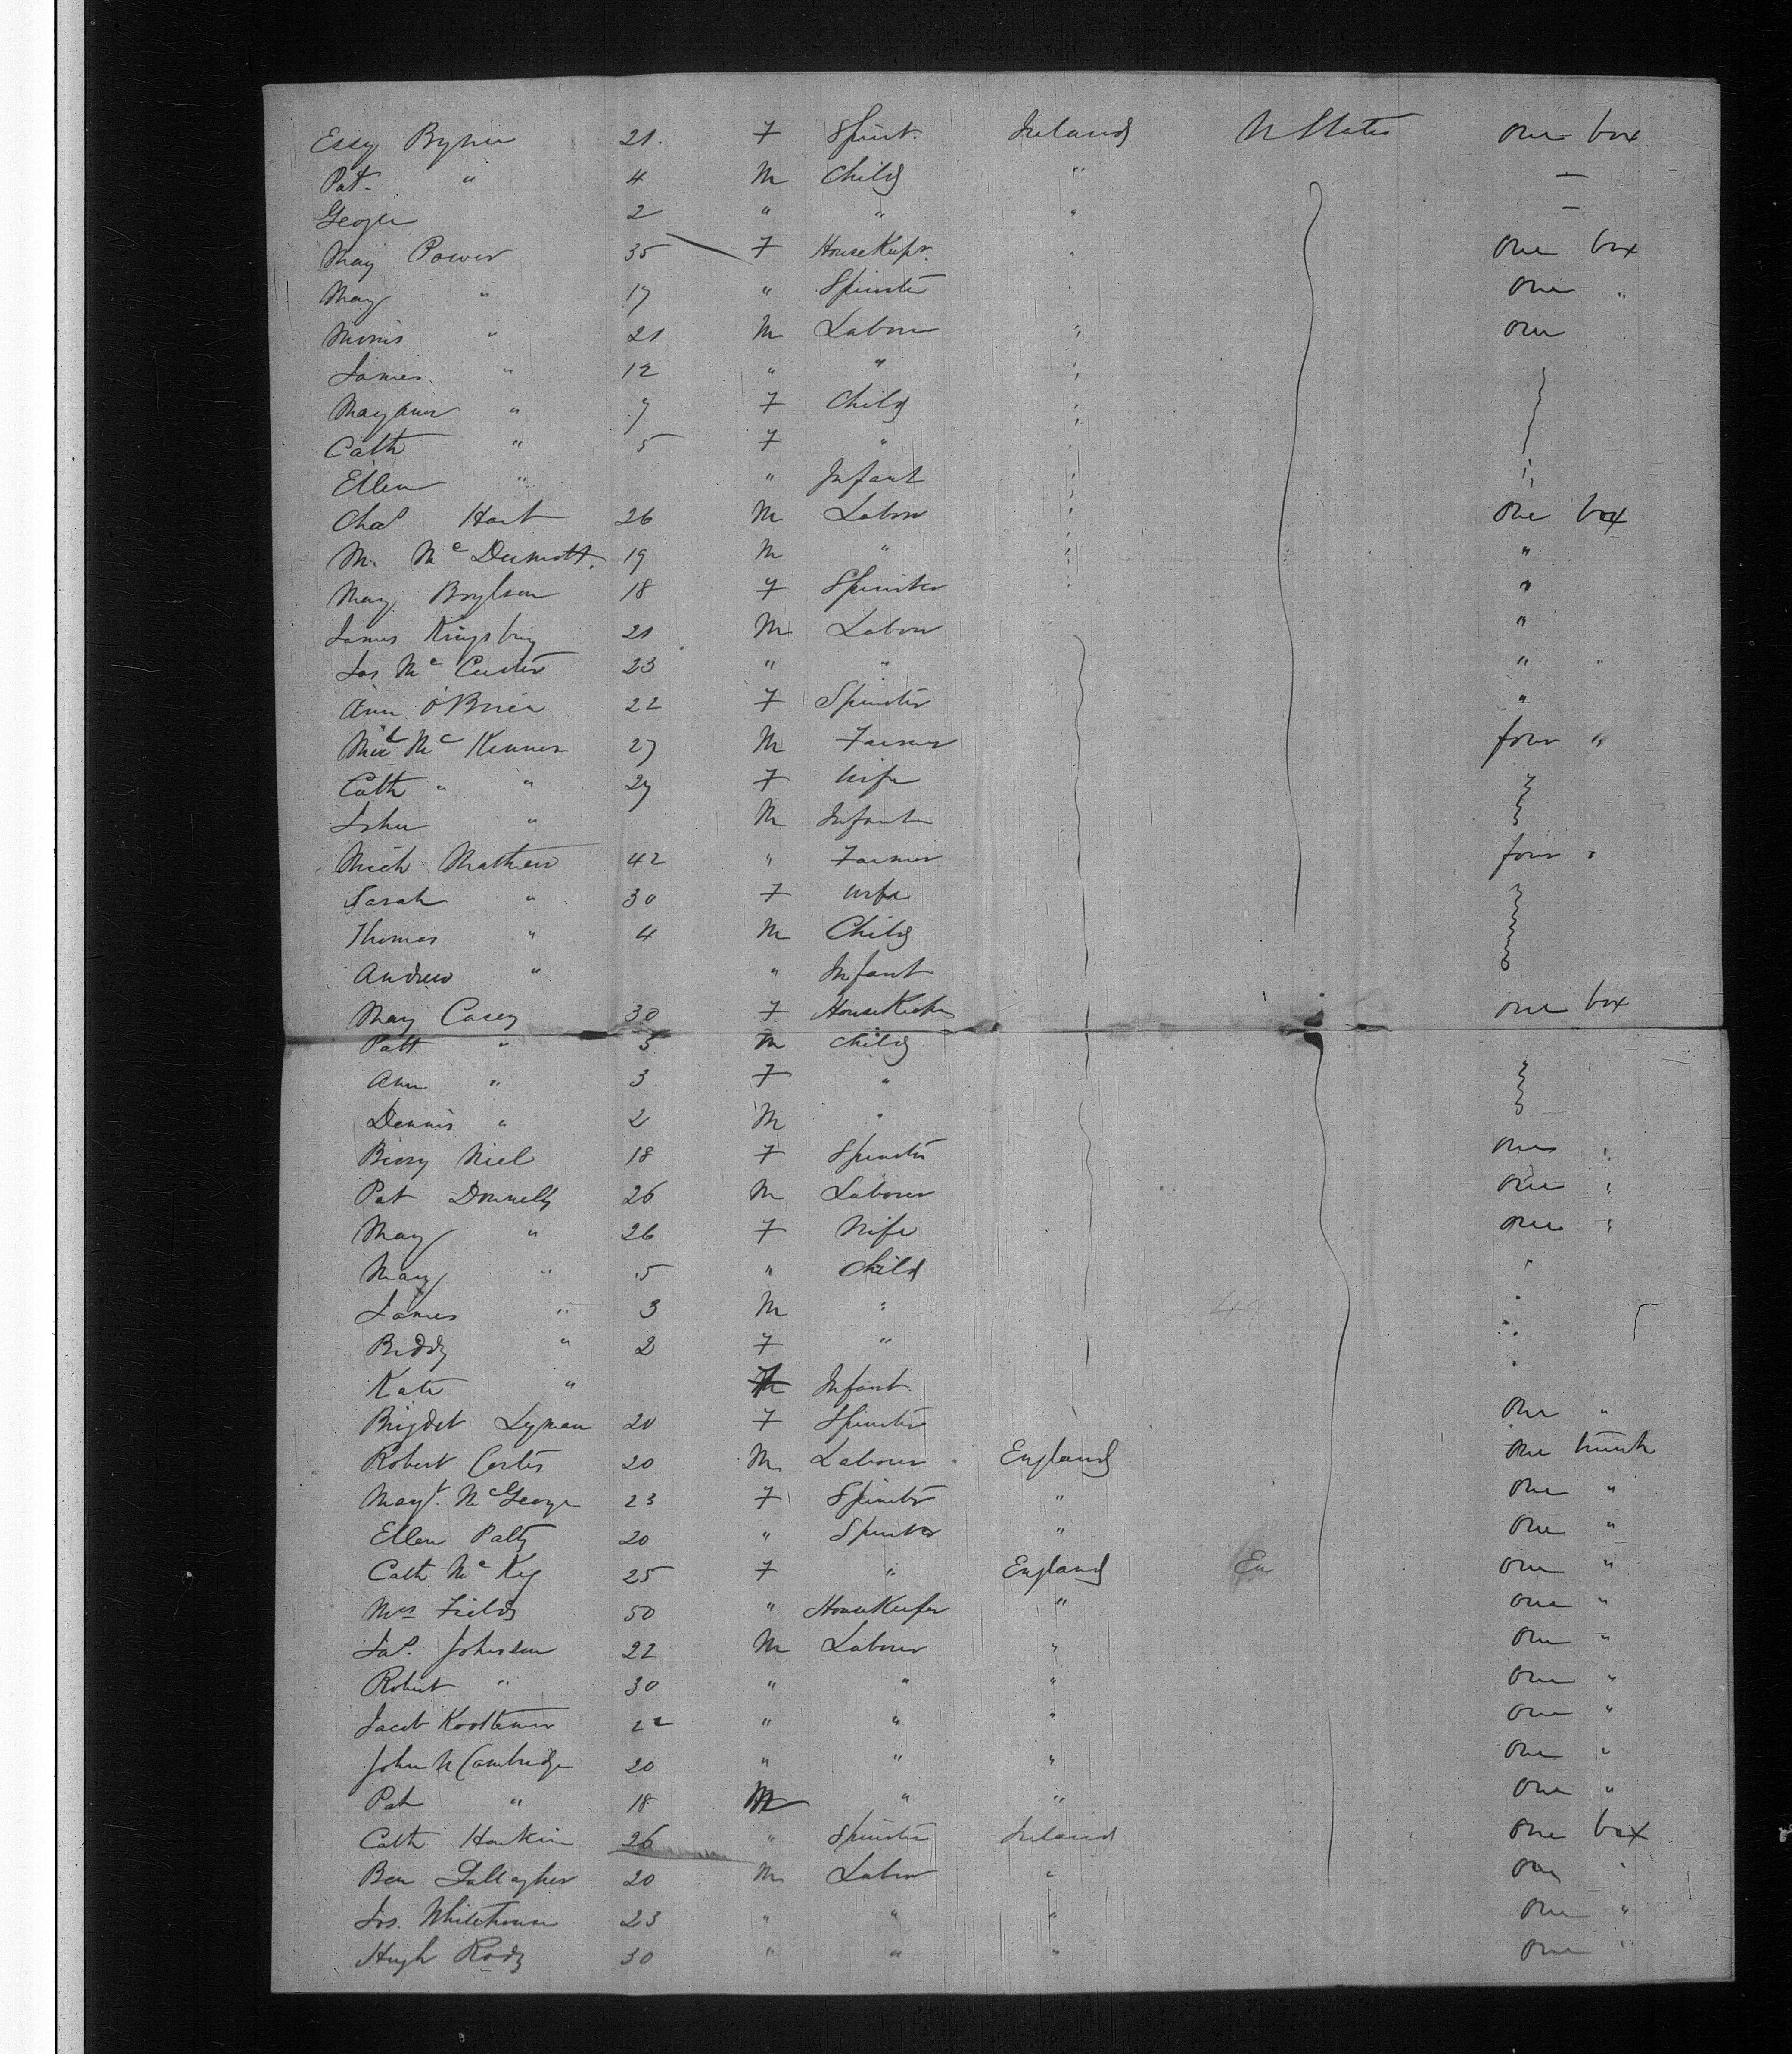 Essy Byrne 21. F Spinst. Ireland U States one box
Pat " 4 M Child " —
George 2 " " " —
May Power 35 F HouseKeepr. " one box
May " 17 " Spinster " one "
Morris " 21 M Labour " one
James " 12 " " "
Mayann " 7 F Child "
Cath " 5 F " "
Ellen " " Infant "
Chas Hart 26 M Labour " one box
M. McDermott. 19 M " " "
May Boylson 18 F Spinster " "
James Kingsbury 21 M Labour "
Jas Mc 23 " " " "
Ann O'Brien 22 F Spinster "
Mic Mc Kenner 27 M Farmer four "
Cath " " 27 F Wife
John " M Infant
Mich Mathew 42 " Farmer four "
Sarah " 30 F Wife
Thomas " 4 M Child
Andrew " " Infant
May Casey 30 F HouseKeeper one box
Patt " 5 M Child
Ann " 3 F "
Dennis " 2 M "
Niel 18 F Spinster one "
Pat Donnelly 26 M Labour one "
May " 26 F Wife one "
Mary " 5 " Child "
James " 3 M " "
Biddy " 2 F " "
Kate " Infant "
Bridget Lyman 20 F Spinster one "
Robert Certes 20 M Labour England one trunk
Mayt. McGeorge 23 F Spinster " one "
Ellen Patty 20 " Spinster " one "
Cath Mc Key 25 F " England En one "
Mrs Fields 50 " HouseKeeper " one "
Jas. Johnson 22 M Labour " one "
Robert " 30 " " " one "
Jacob 22 " " " one "
John Cambridge 20 " " " one "
Pat " 18 M " " one "
Cath Harkin 26 " Spinster Ireland one box
Ben Gallagher 20 M Labour " one "
Jos. Whitehouse 23 " " " one "
Hugh Rody 30 " " " one "